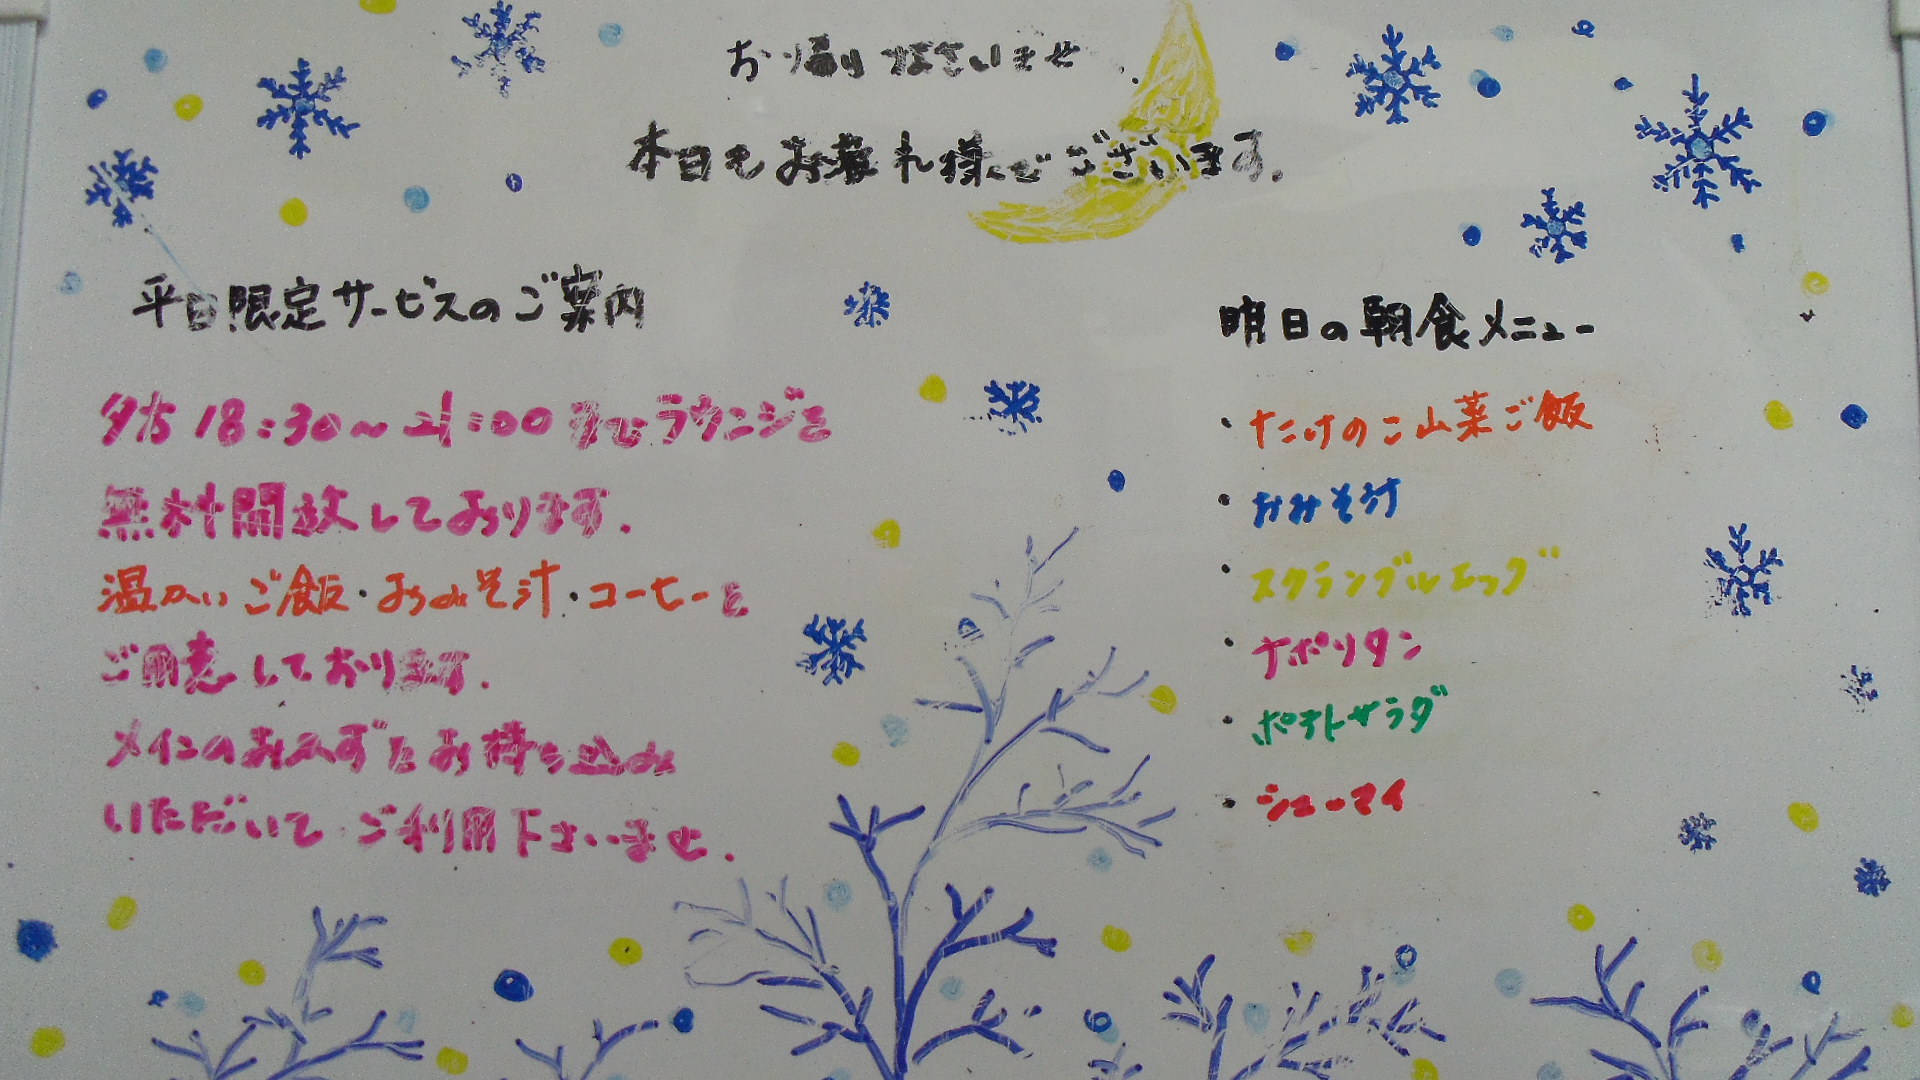 お帰りなさいませ
本日もお疲れ様でございます。
平日限定サービスのご案内
夕方18:30～21:00までラウンジを
無料開放しております。
温かいご飯・おみそ汁・コーヒーを
ご用意しております。
メインのおかずをお持ち込み
いただいてご利用下さいませ。
明日の朝食メニュー
・たけのこ山菜ご飯
・おみそ汁
・スクランブルエッグ
・ナポリタン
・ポテトサラダ
・シューマイ